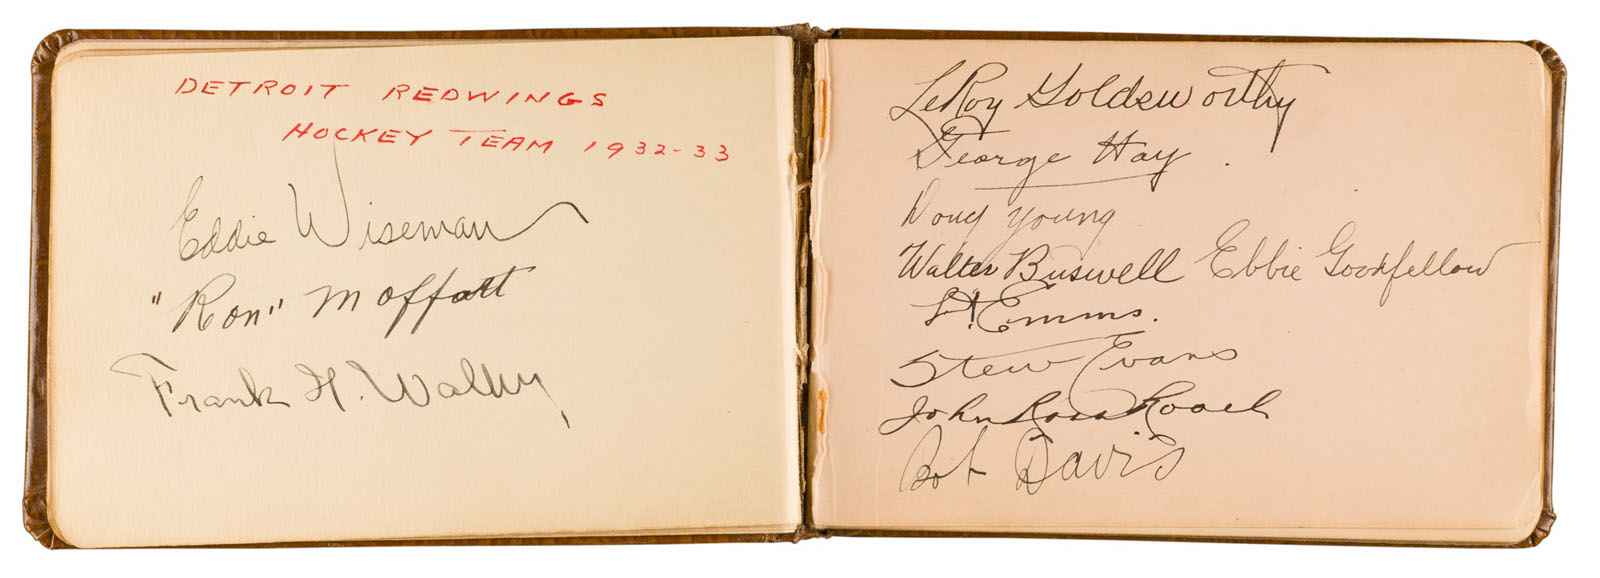 DETROIT REDWINGS
HOCKEY TEAM 1932-33
Eddie Wiseman
"Ron" Moffatt
Frank H.
LeRoy Goldsworthy
George Hay .
Doug Young
Walter Buswell Ebbie Goodfellow
Emms.
Stew Evans
John Ross Roach
Bob Davis